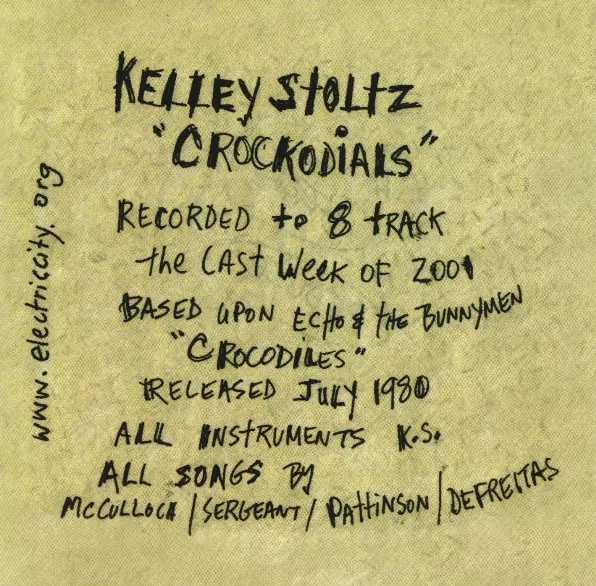 KELLEY StOLtZ
"CROCKODiALS"
RECORDED to 8 tRACK
the LASt WeeK OF 2001
BASED UPON ECHO & tHE BUNNYMEN
"CROCODiLES"
RELEASED JULY 1980
ALL INStRUMENtS K.S.
ALL SONGS BY
McCULLOCH / SERGEANt / PAttiNSON / DEFREITAS
www.electriccity.org